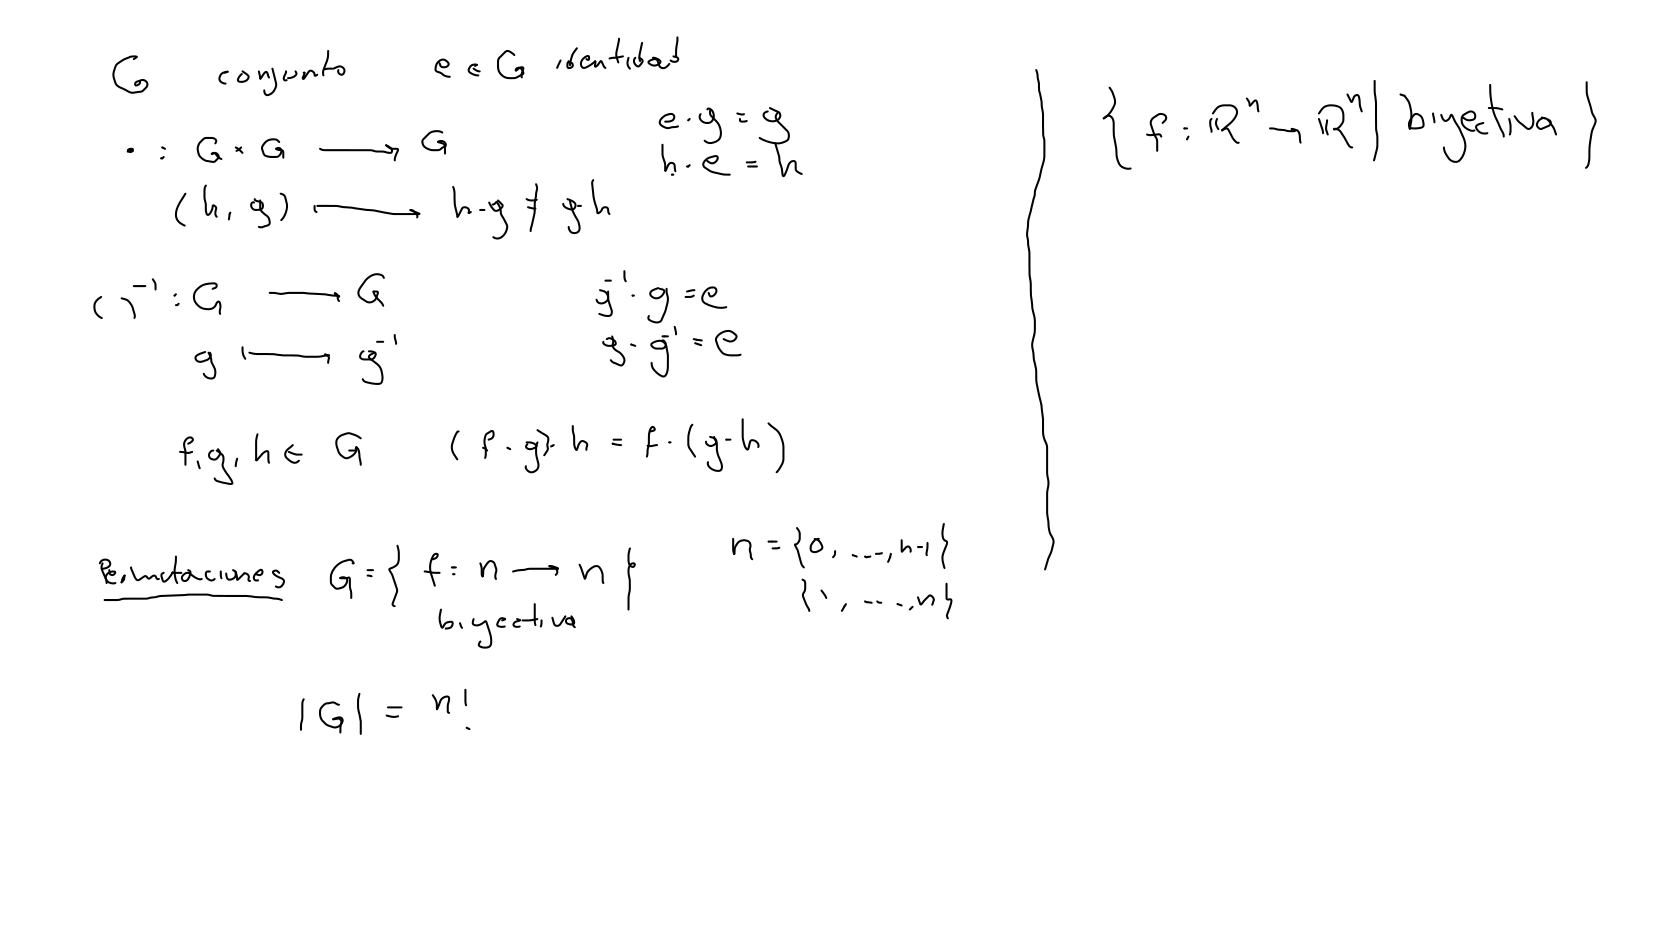 G conjunto e ∈ G identidad
e · g = g
· : G × G ⟶ G
h · e = h
(h, g) ⟼ h · g ≠ g · h
( )⁻¹ : G ⟶ G g⁻¹ · g = e
g ⟼ g⁻¹ g · g⁻¹ = e
f, g, h ∈ G (f · g) · h = f · (g · h)
Permutaciones G = { f : n ⟶ n } n = {0, ..., n-1}
biyectiva {1, ..., n}
|G| = n!
{ f : ℝⁿ → ℝⁿ | biyectiva }